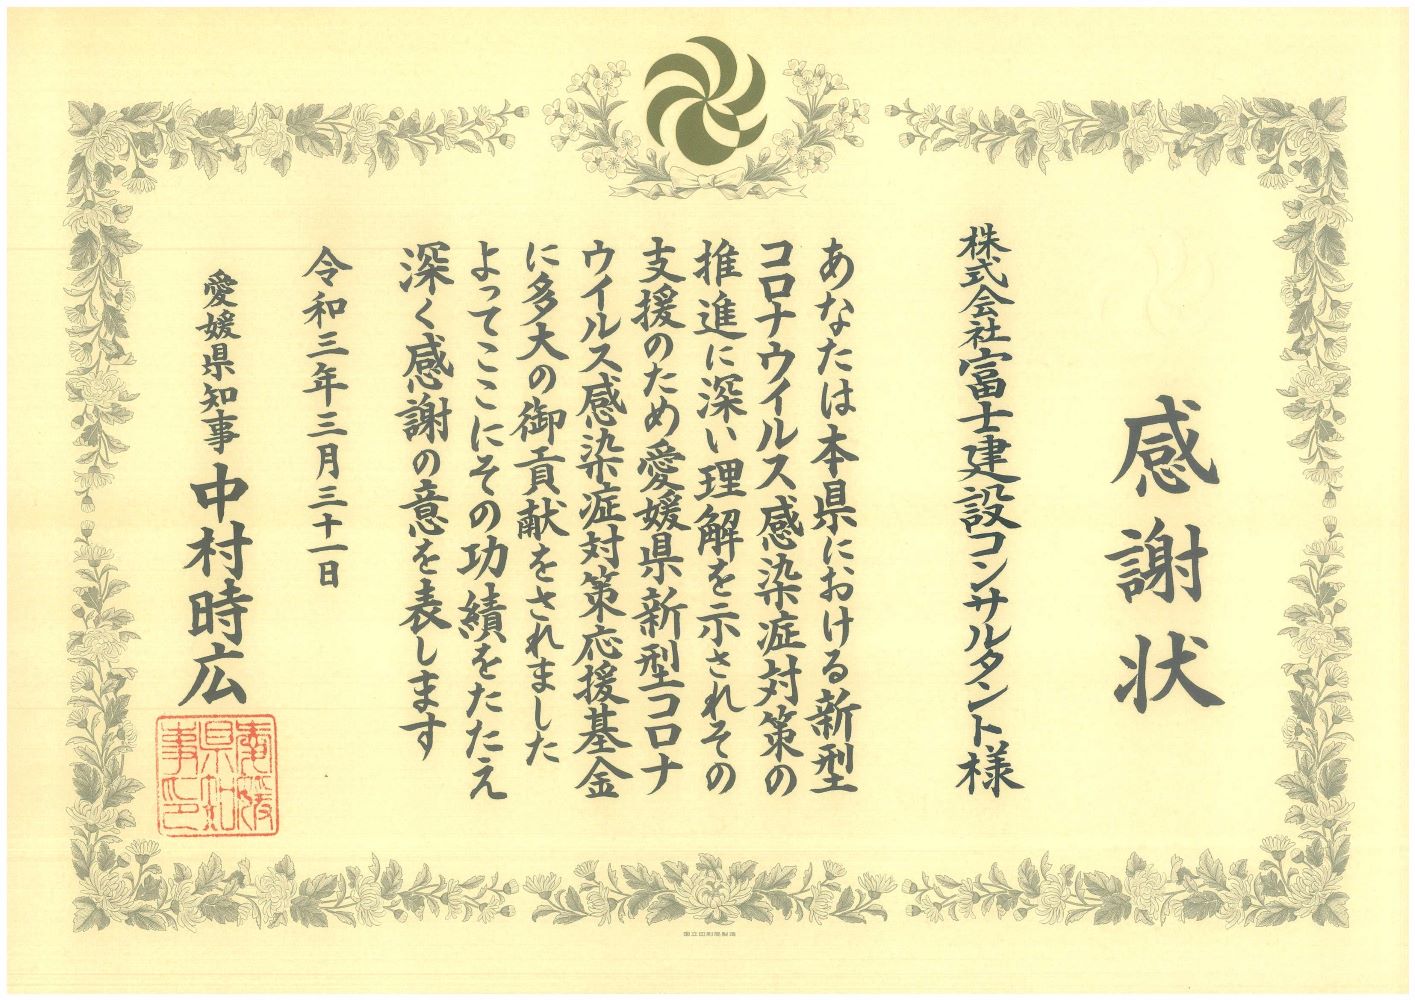 感謝状
株式会社富士建設コンサルタント様
あなたは本県における新型
コロナウイルス感染症対策の
推進に深い理解を示されその
支援のため愛媛県新型コロナ
ウイルス感染症対策応援基金
に多大の御貢献をされました
よってここにその功績をたたえ
深く感謝の意を表します
令和三年三月三十一日
愛媛県知事 中村時広
愛媛
県知
事印
国立印刷局製造